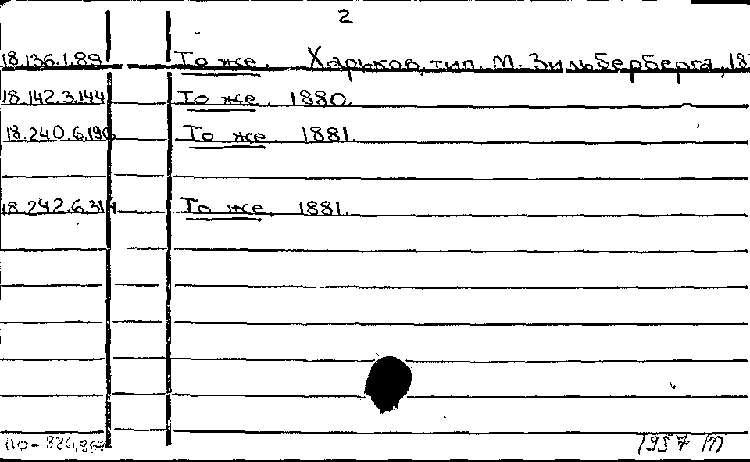 2
18.136.1.89 То же. Харьков, тип. М. Зильберберга, 18
18.142.3.144 То же. 1880.
18.240.6.196 То же 1881.
18.242.6.314 То же. 1881.
1957 m